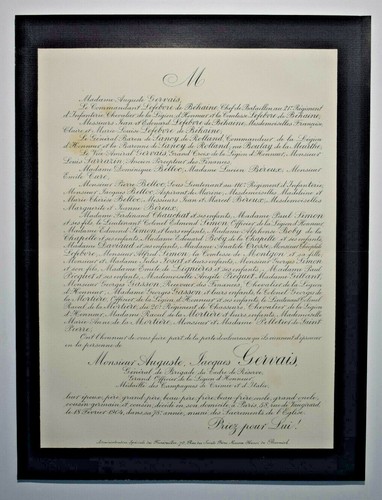 M
Madame Auguste Gervais,
Le Commandant Lefebvre de Béhaine, Chef de Bataillon au 21e Régiment
d'Infanterie, Chevalier de la Légion d'Honneur et la Comtesse Lefebvre de Béhaine,
Messieurs Jean et Edouard Lefebvre de Béhaine, Mesdemoiselles Françoise
Claire et Marie Louise Lefebvre de Béhaine,
Le Général Baron de Lancy de Rolland, Commandeur de la Légion
d'Honneur et la Baronne de Lancy de Rolland, née Boulay de la Meurthe,
Le Vice Amiral Gervais, Grand Croix de la Légion d'Honneur, Monsieur
Louis Sarrazin, Ancien Percepteur des Finances,
Madame Dominique Belloc, Madame Lucien Béreux, Monsieur
Emile Caré,
Monsieur Pierre Belloc, Sous Lieutenant au Régiment d'Infanterie,
Monsieur Jacques Belloc, Aspirant de Marine, Mesdemoiselles Madeleine et
Marie Thérèse Belloc, Messieurs Jean et Marcel Béreux, Mesdemoiselles
Marguerite et Jeanne Béreux,
Madame Ferdinand Chauchat et ses enfants, Madame Paul Simon
et ses fils, le Lieutenant Colonel Edmond Simon, Officier de la Légion d'Honneur
Madame Edmond Simon et leurs enfants, Madame Alphonse Boby de la
Chapelle et ses enfants, Madame Edouard Boby de la Chapelle et ses enfants,
Madame Daviaud et ses enfants, Madame Anatole Crosse, Monsieur Joseph
Lefebvre, Monsieur Alfred Simon, la Comtesse de Montgon et sa fille,
Monsieur et Madame Jules Josat et leurs enfants, Monsieur Georges Simon
et son fils, Madame Comte de Lignières et ses enfants, Madame Paul
Broquet et ses enfants, Mademoiselle Angèle Broquet, Madame Gillard,
Monsieur Georges Gasson, Receveur des Finances, Chevalier de la Légion
d'Honneur, Madame Georges Gasson et leurs enfants, le Colonel Georges de
la Mortière, Officier de la Légion d'Honneur et ses enfants, le Lieutenant Colonel
Raoul de la Mortière, du 20e Régiment de Chasseurs, Chevalier de la Légion
d'Honneur, Madame Raoul de la Mortière et leurs enfants, Mademoiselle
Marie Anne de la Mortière, Monsieur et Madame Pelletier de Saint
Pierre,
Ont l'honneur de vous faire part de la perte douloureuse qu'ils viennent d'éprouver
en la personne de
Monsieur Auguste, Jacques Gervais,
Général de Brigade du Cadre de Réserve,
Grand Officier de la Légion d'Honneur,
Médaillé des Campagnes de Crimée et d'Italie,
leur époux, père, grand père, beau père, frère, beau frère, oncle, grand oncle,
cousin germain et cousin, décédé en son domicile à Paris, 58, rue de Vaugirard,
le 18 Février 1904, dans sa 78e année, muni des Sacrements de l'Eglise.
Priez pour Lui!